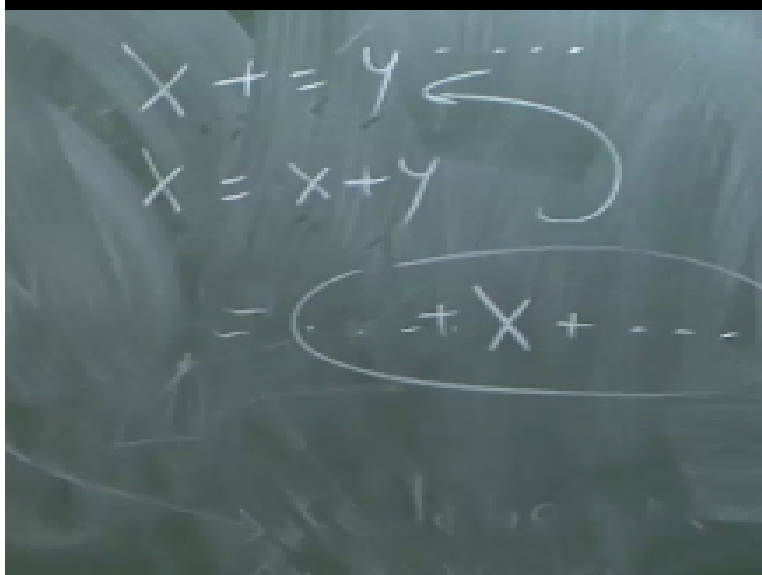 X += y ....
X = X + y
= ... + X + ...